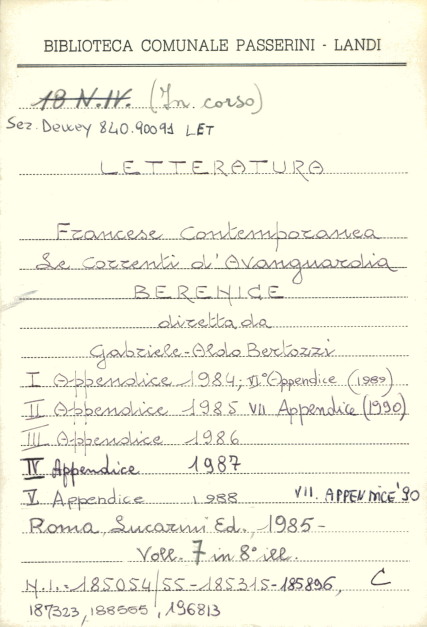 BIBLIOTECA COMUNALE PASSERINI - LANDI
18 N.IV. (In corso)
Sez. Dewey 840.90091 LET
LETTERATURA
Francese Contemporanea
Le Correnti d'Avanguardia
BERENICE
diretta da
Gabriele-Aldo Bertozzi
I Appendice 1984; VI° Appendice (1989)
II Appendice 1985 VII Appendice (1990)
III Appendice 1986
IV Appendice 1987
V Appendice 1988 VII. APPENDICE '90
Roma, Lucarini Ed., 1985-
Voll. 7 in 8° ill.
N.I.: 185054/55-185315-185896, C
187323, 196813